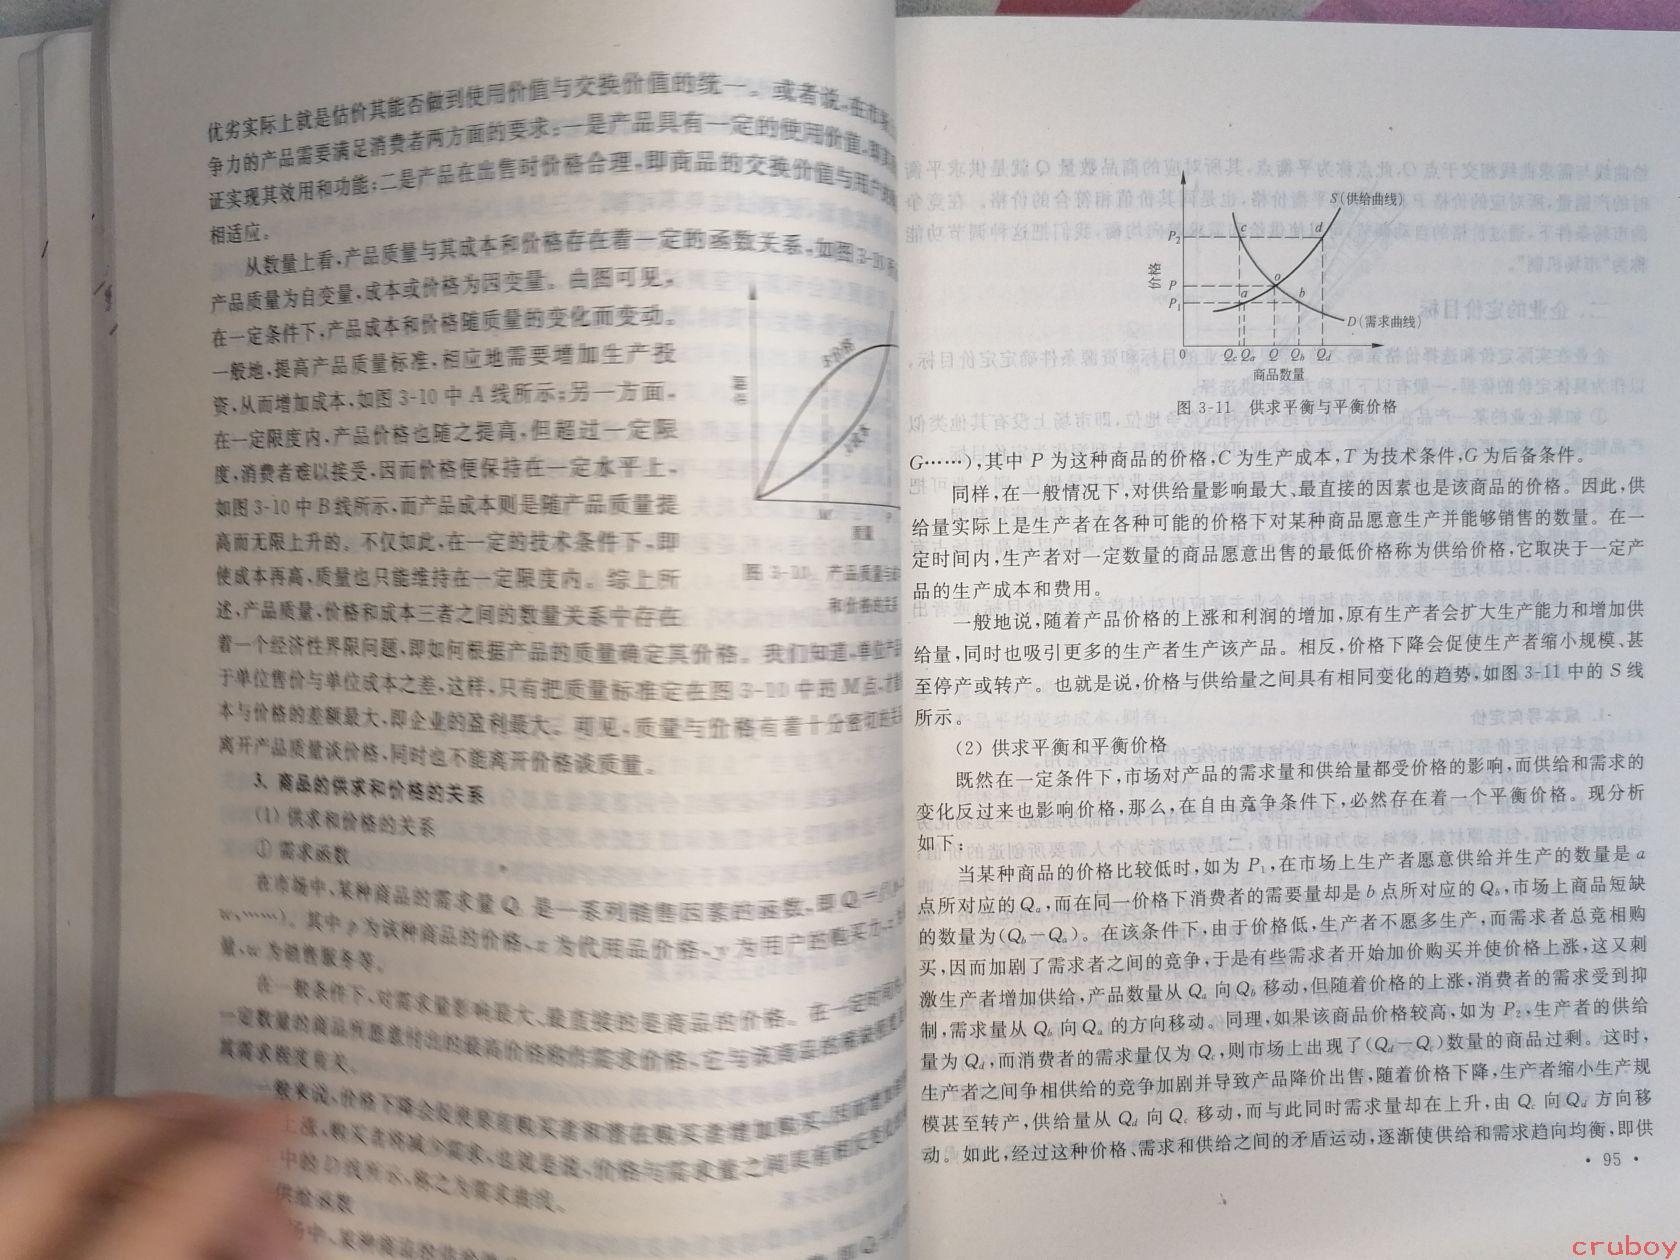 优劣实际上就是估价其能否做到使用价值与交换价值的统一。或者说,在市场上
争力的产品需要满足消费者两方面的要求:一是产品具有一定的使用价值,即
证实现其效用和功能;二是产品在出售时价格合理,即商品的交换价值与用户
相适应。
从数量上看,产品质量与其成本和价格存在着一定的函数关系,如图3-10所
产品质量为自变量,成本或价格为因变量。由图可见,
在一定条件下,产品成本和价格随质量的变化而变动。
一般地,提高产品质量标准,相应地需要增加生产投
资,从而增加成本,如图 3-10 中 A 线所示;另一方面,
在一定限度内,产品价格也随之提高,但超过一定限
度,消费者难以接受,因而价格便保持在一定水平上,
如图 3-10 中 B 线所示,而产品成本则是随产品质量提
高而无限上升的。不仅如此,在一定的技术条件下,即
使成本再高,质量也只能维持在一定限度内。综上所
述,产品质量、价格和成本三者之间的数量关系中存在
图 3-10 产品质量与成
和价格的关系
质量
着一个经济性界限问题,即如何根据产品的质量确定其价格。我们知道,单位产品
于单位售价与单位成本之差,这样,只有把质量标准定在图 3-10 中的 M 点,才
本与价格的差额最大,即企业的盈利最大。可见,质量与价格有着十分密切的关
离开产品质量谈价格,同时也不能离开价格谈质量。
3. 商品的供求和价格的关系
(1) 供求和价格的关系
① 需求函数
在市场中,某种商品的需求量 Q 是一系列销售因素的函数,即 Q=f(
w,……)。其中 p 为该种商品的价格、x 为代用品价格、y 为用户的购买力、z
量、w 为销售服务等。
在一般条件下,对需求量影响最大、最直接的是商品的价格。在一定时间内
一定数量的商品所愿意付出的最高价格称作需求价格,它与该商品的
其需求程度有关。
一般来说,价格下降会促使原有购买者和潜在购买者增加购买,因而增加
上涨,购买者将减少需求,也就是说,价格与需求量之间具有相反变化
中的 D 线所示,称之为需求曲线。
供给函数
场中,某种商品的供给
价格
P₂
P
P₁
c
d
S(供给曲线)
o
a
b
D(需求曲线)
0
Qc Qa Q Qb Qd
商品数量
图 3-11 供求平衡与平衡价格
G……),其中 P 为这种商品的价格,C 为生产成本,T 为技术条件,G 为后备条件。
同样,在一般情况下,对供给量影响最大、最直接的因素也是该商品的价格。因此,供
给量实际上是生产者在各种可能的价格下对某种商品愿意生产并能够销售的数量。在一
定时间内,生产者对一定数量的商品愿意出售的最低价格称为供给价格,它取决于一定产
品的生产成本和费用。
一般地说,随着产品价格的上涨和利润的增加,原有生产者会扩大生产能力和增加供
给量,同时也吸引更多的生产者生产该产品。相反,价格下降会促使生产者缩小规模、甚
至停产或转产。也就是说,价格与供给量之间具有相同变化的趋势,如图 3-11 中的 S 线
所示。
(2) 供求平衡和平衡价格
既然在一定条件下,市场对产品的需求量和供给量都受价格的影响,而供给和需求的
变化反过来也影响价格,那么,在自由竞争条件下,必然存在着一个平衡价格。现分析
如下:
当某种商品的价格比较低时,如为 P₁,在市场上生产者愿意供给并生产的数量是 a
点所对应的 Qa,而在同一价格下消费者的需要量却是 b 点所对应的 Qb,市场上商品短缺
的数量为(Qb－Qa)。在该条件下,由于价格低,生产者不愿多生产,而需求者总竞相购
买,因而加剧了需求者之间的竞争,于是有些需求者开始加价购买并使价格上涨,这又刺
激生产者增加供给,产品数量从 Qa 向 Qb 移动,但随着价格的上涨,消费者的需求受到抑
制,需求量从 Qb 向 Qa 的方向移动。同理,如果该商品价格较高,如为 P₂,生产者的供给
量为 Qd,而消费者的需求量仅为 Qc,则市场上出现了(Qd－Qc)数量的商品过剩。这时,
生产者之间争相供给的竞争加剧并导致产品降价出售,随着价格下降,生产者缩小生产规
模甚至转产,供给量从 Qd 向 Qc 移动,而与此同时需求量却在上升,由 Qc 向 Qd 方向移
动。如此,经过这种价格、需求和供给之间的矛盾运动,逐渐使供给和需求趋向均衡,即供
• 95 •
cruboy